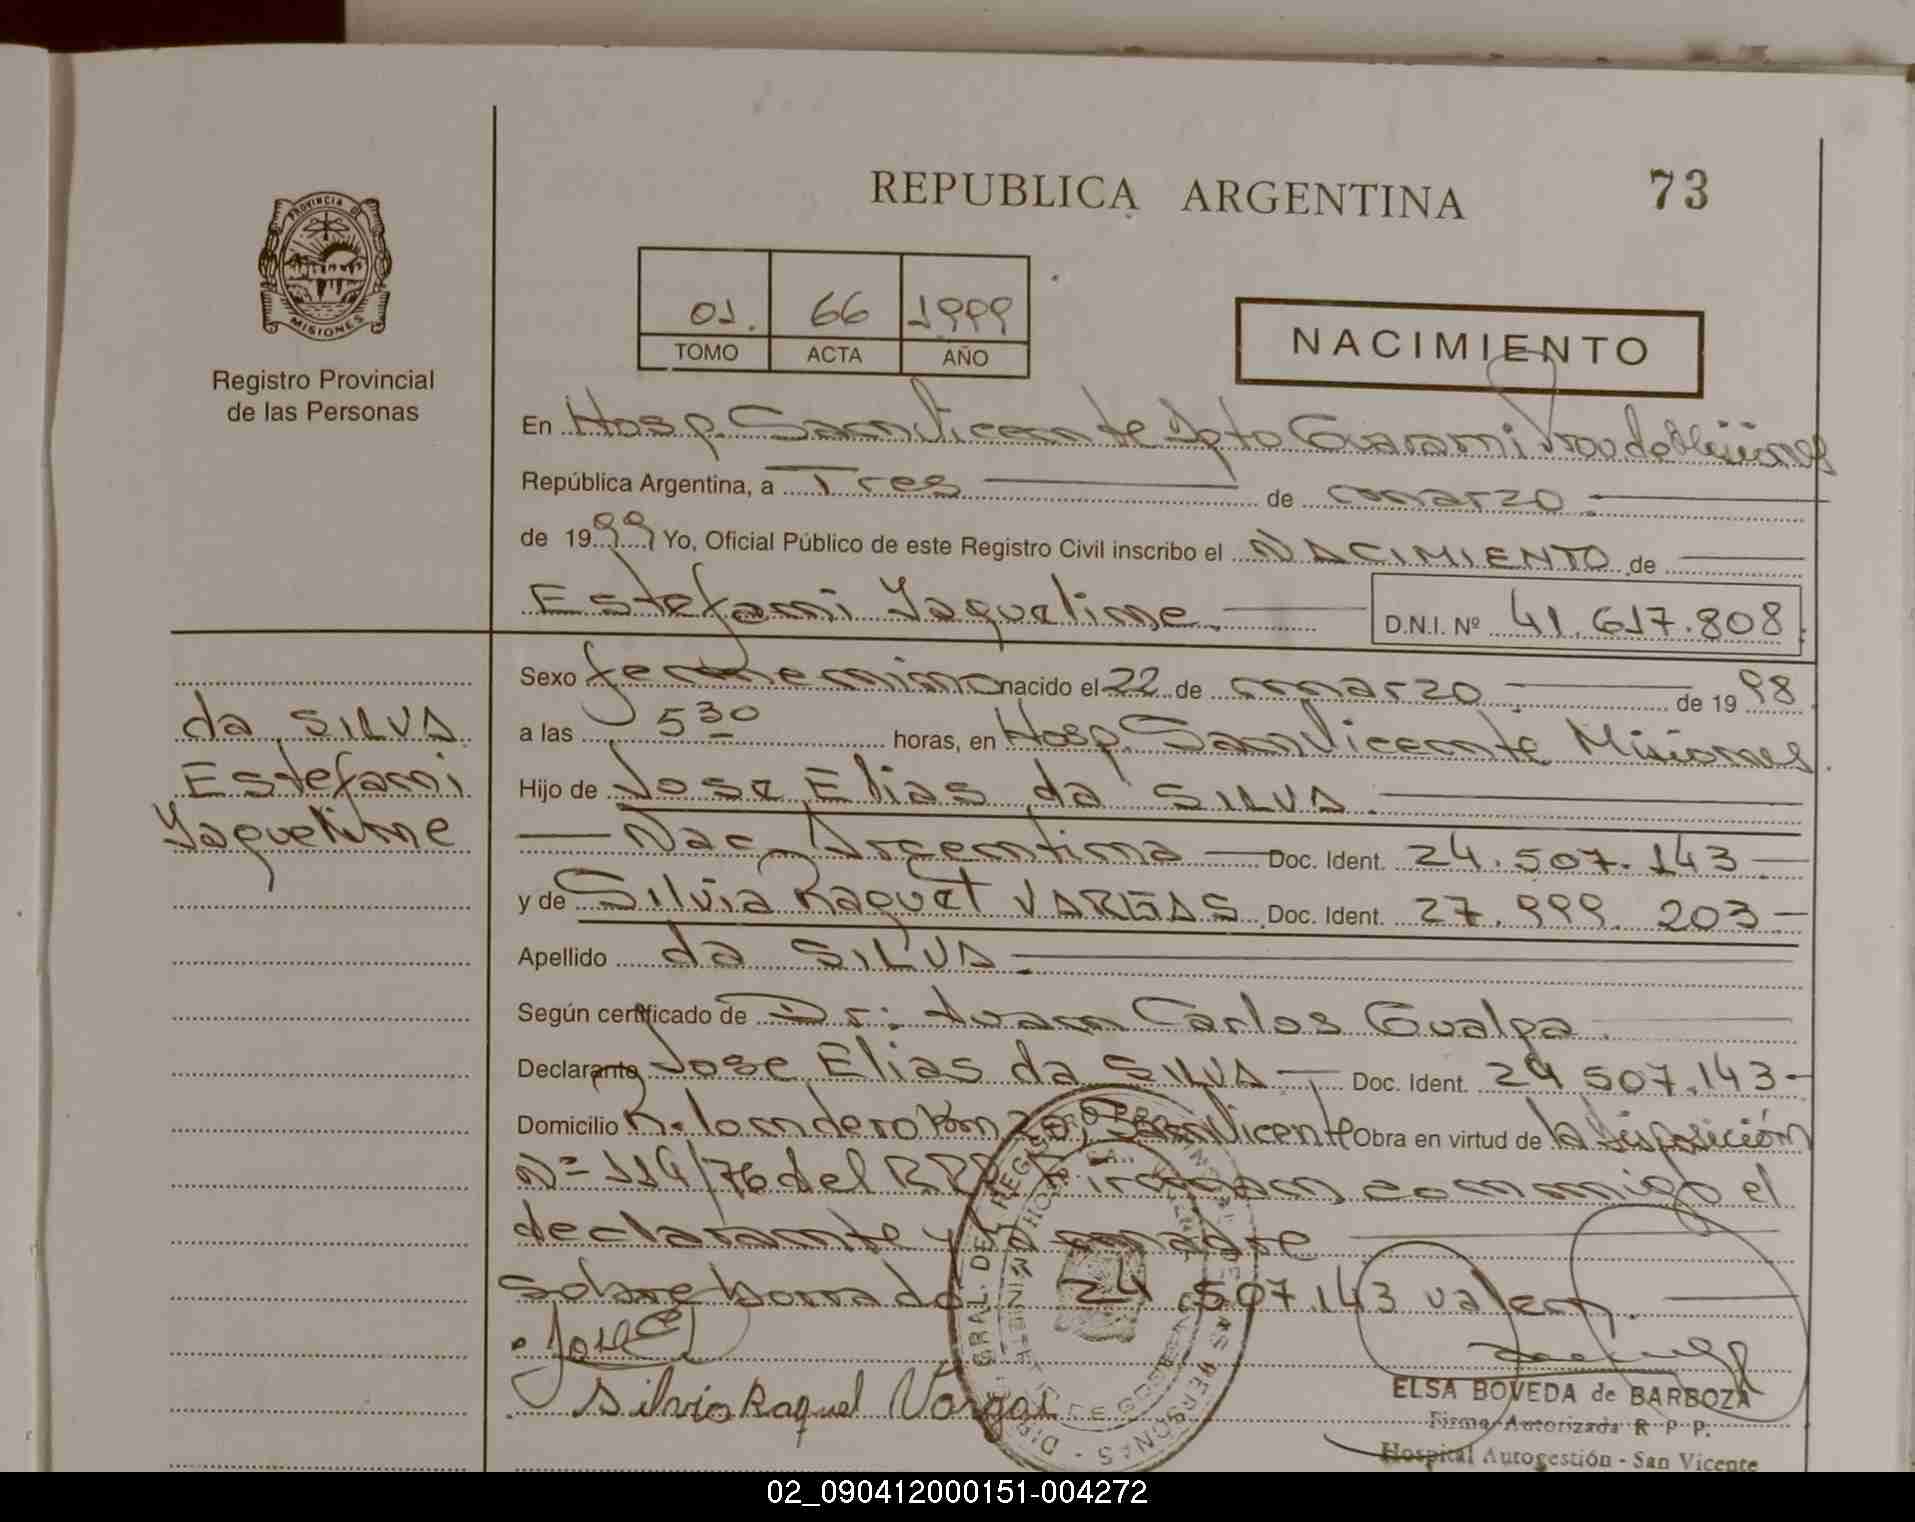 REPUBLICA ARGENTINA
73
PROVINCIA DE
MISIONES
Registro Provincial
de las Personas
01. 66 1999
TOMO ACTA AÑO
NACIMIENTO
En Hosp. San Vicente Dpto Guaraní Misiones
República Argentina, a Tres de marzo.
de 1999 Yo, Oficial Público de este Registro Civil inscribo el NACIMIENTO de
Estefani Yaqueline.
D.N.I. Nº 41.617.808
Sexo femenino nacido el 22 de marzo de 1998
a las 5 30 horas, en Hosp. San Vicente Misiones
Hijo de Jose Elias da SILVA.
Nac. Argentina Doc. Ident. 24.507.143
y de Silvia Raquel VARGAS Doc. Ident. 27.999.203
Apellido da SILVA.
Según certificado de Dr: Juan Carlos Gualpa.
Declarante Jose Elias da SILVA Doc. Ident. 24 507.143
Domicilio San Vicente Obra en virtud de la disposición
Nº 114/76 del conmigo el
declarante y la madre
sobreborrado 24 507.143 valen.
Jose
Silvia Raquel Vargas
ELSA BOVEDA de BARBOZA
Firma Autorizada R P P.
Hospital Autogestión - San Vicente
da SILVA
Estefani
Yaqueline
02_090412000151-004272